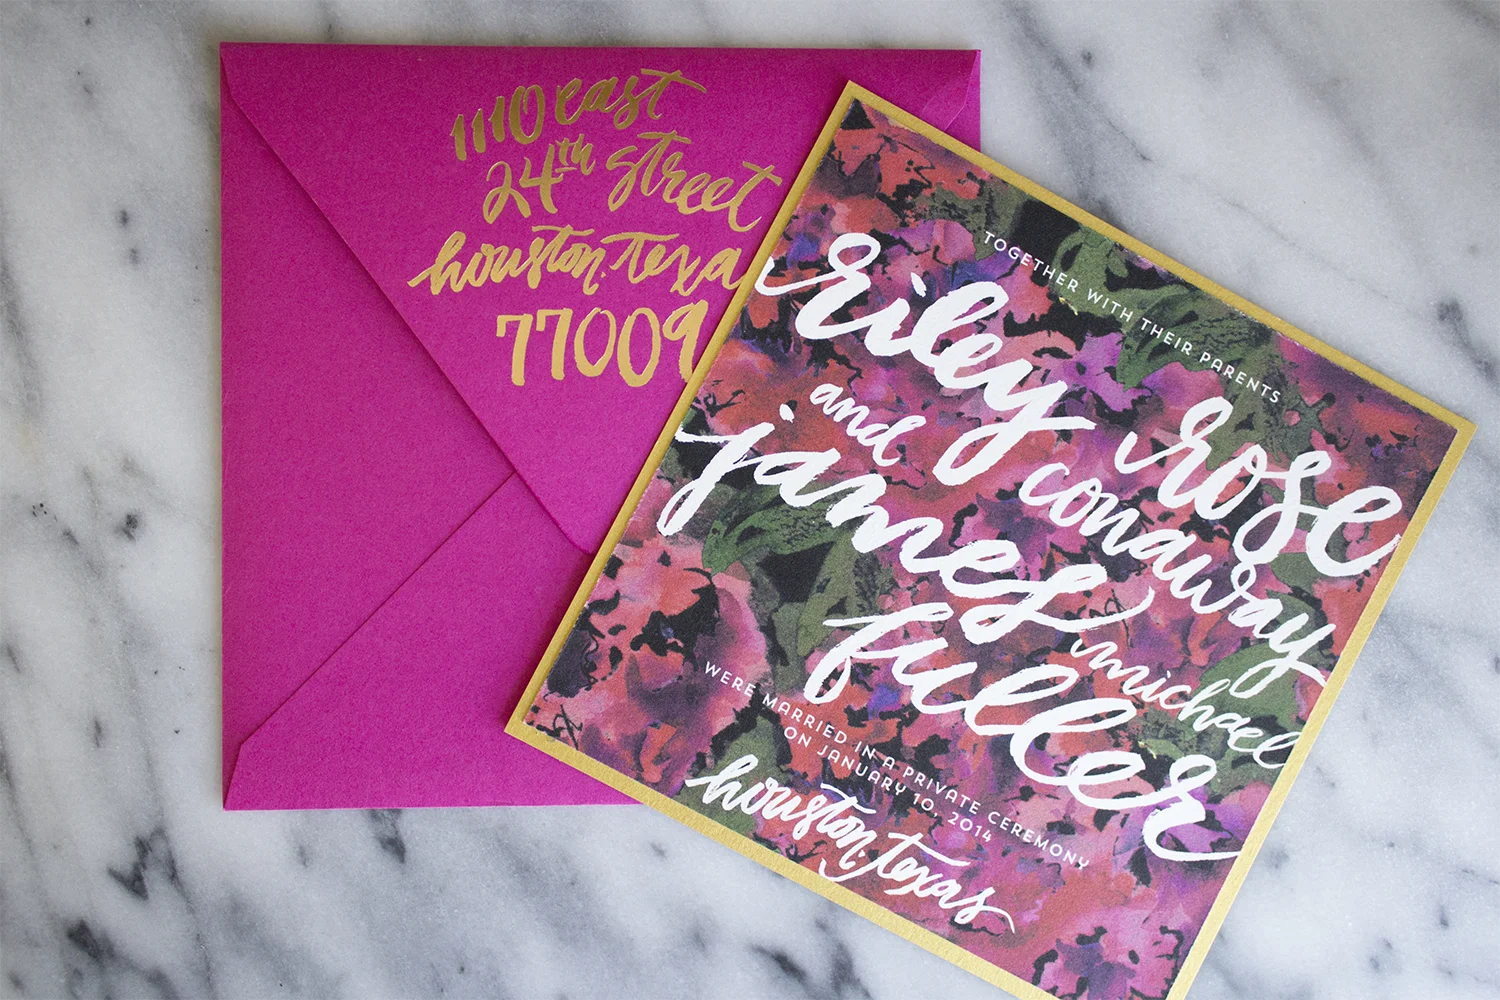 1110 east
24th street
houston, texa
77009
TOGETHER WITH THEIR PARENTS
riley rose
and conaway
james michael
fuller
WERE MARRIED IN A PRIVATE CEREMONY
ON JANUARY 10, 2014
houston, texas